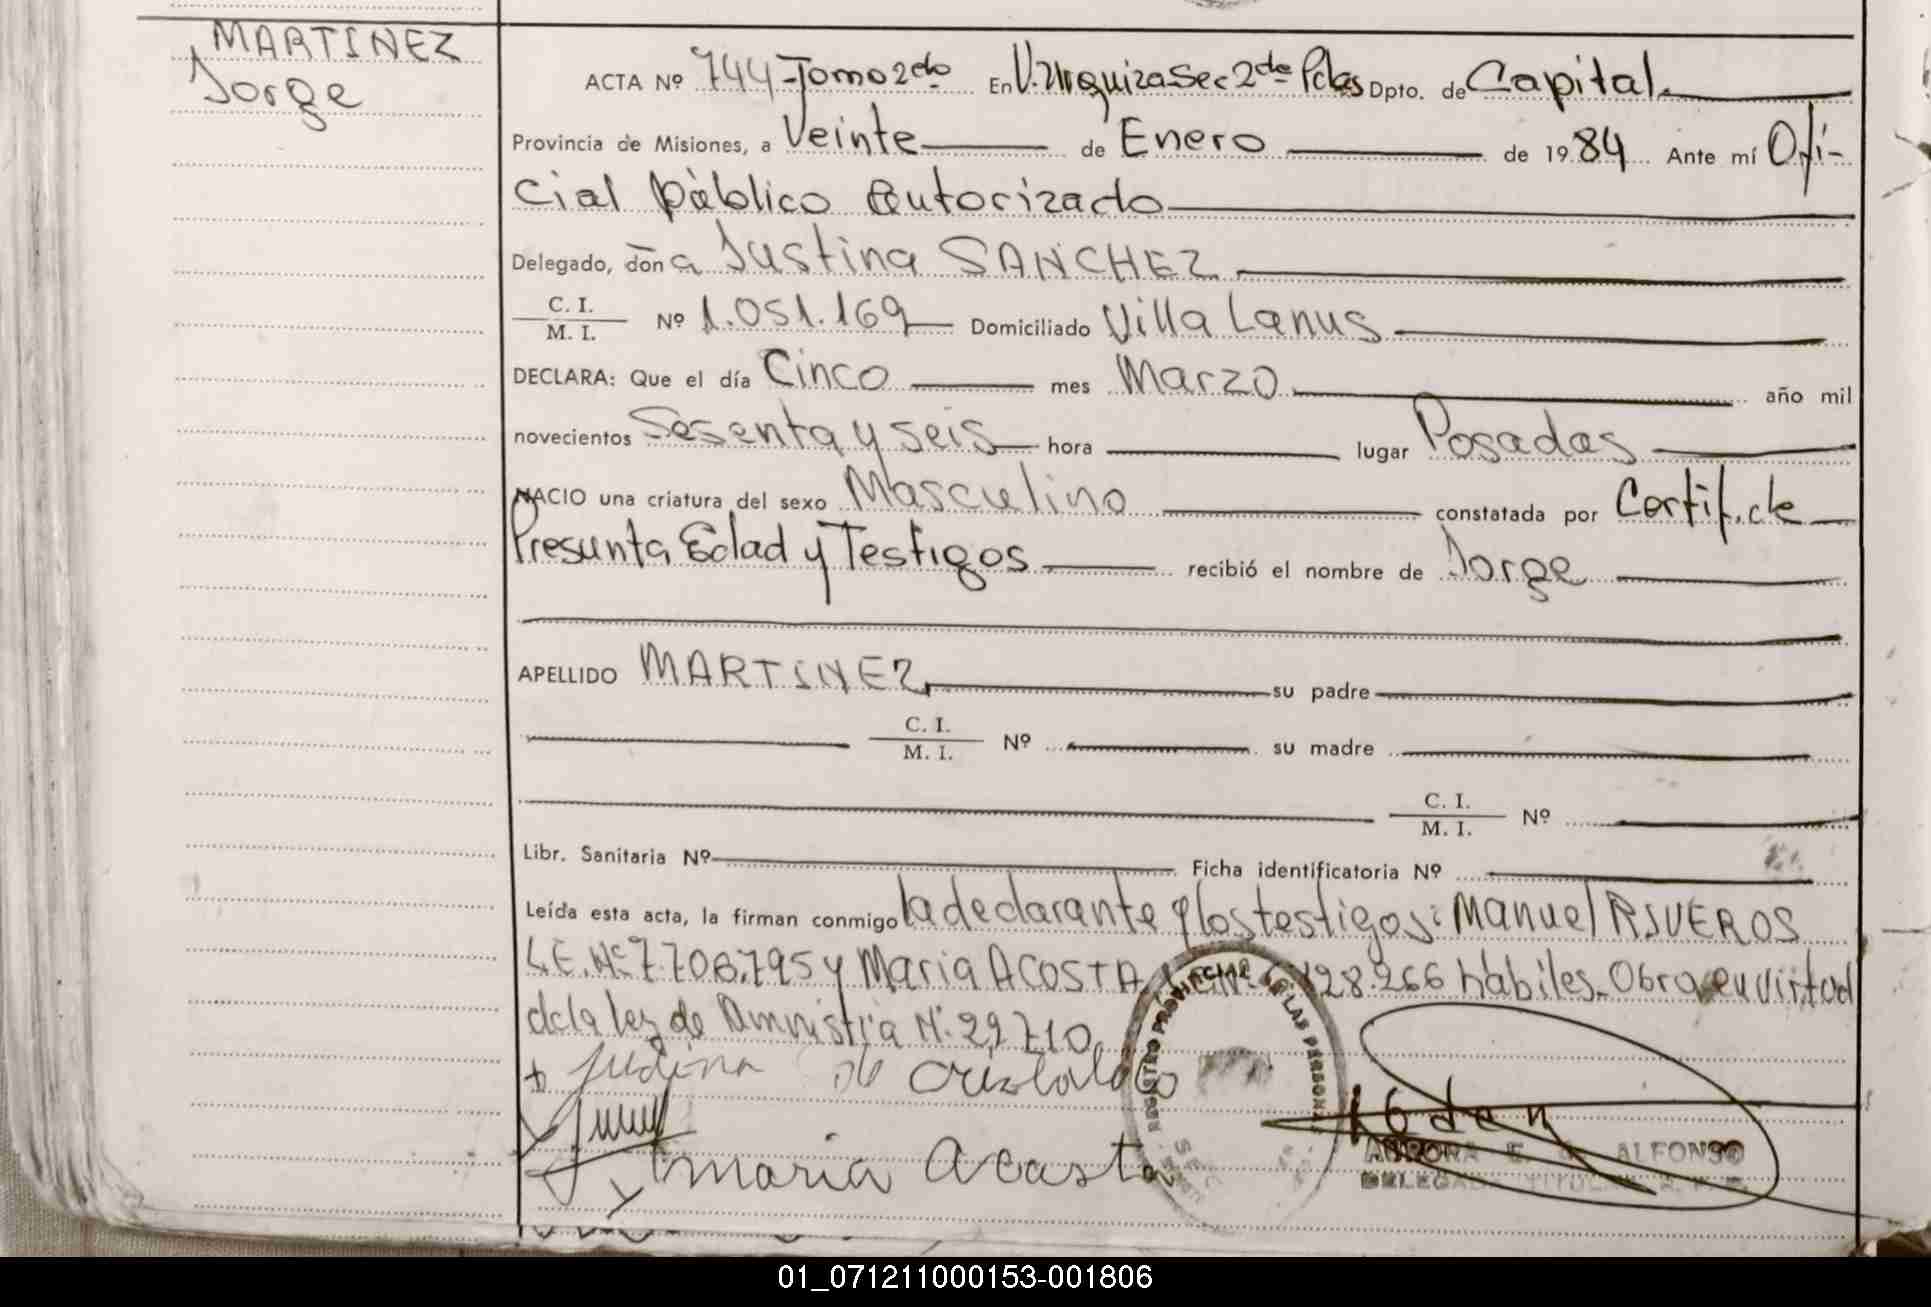 MARTINEZ
Jorge
ACTA Nº 744-Tomo 2do En V. Urquiza Sec 2da Pdas Dpto. de Capital
Provincia de Misiones, a Veinte de Enero de 1984 Ante mí Ofi-
cial Público Autorizado
Delegado, doña Justina SANCHEZ
C. I.
M. I. Nº 1.051.169 Domiciliado Villa Lanus
DECLARA: Que el día Cinco mes Marzo año mil
novecientos Sesenta y seis hora lugar Posadas
NACIO una criatura del sexo Masculino constatada por Certif. de
Presunta Edad y Testigos recibió el nombre de Jorge
APELLIDO MARTINEZ su padre
C. I.
M. I. Nº su madre
C. I.
M. I. Nº
Libr. Sanitaria Nº Ficha identificatoria Nº
Leída esta acta, la firman conmigo la declarante y los testigos: Manuel RIVEROS
L.E. Nº 7.708.795 y Maria ACOSTA 128.266 hábiles. Obra en virtud
de la ley de Amnistia Nº 22.710
de Cristaldo
maria Acosta
REGISTRO PROVINCIAL DE LAS PERSONAS
AURORA E. ALFONSO
DELEGADA TITULAR
01_071211000153-001806